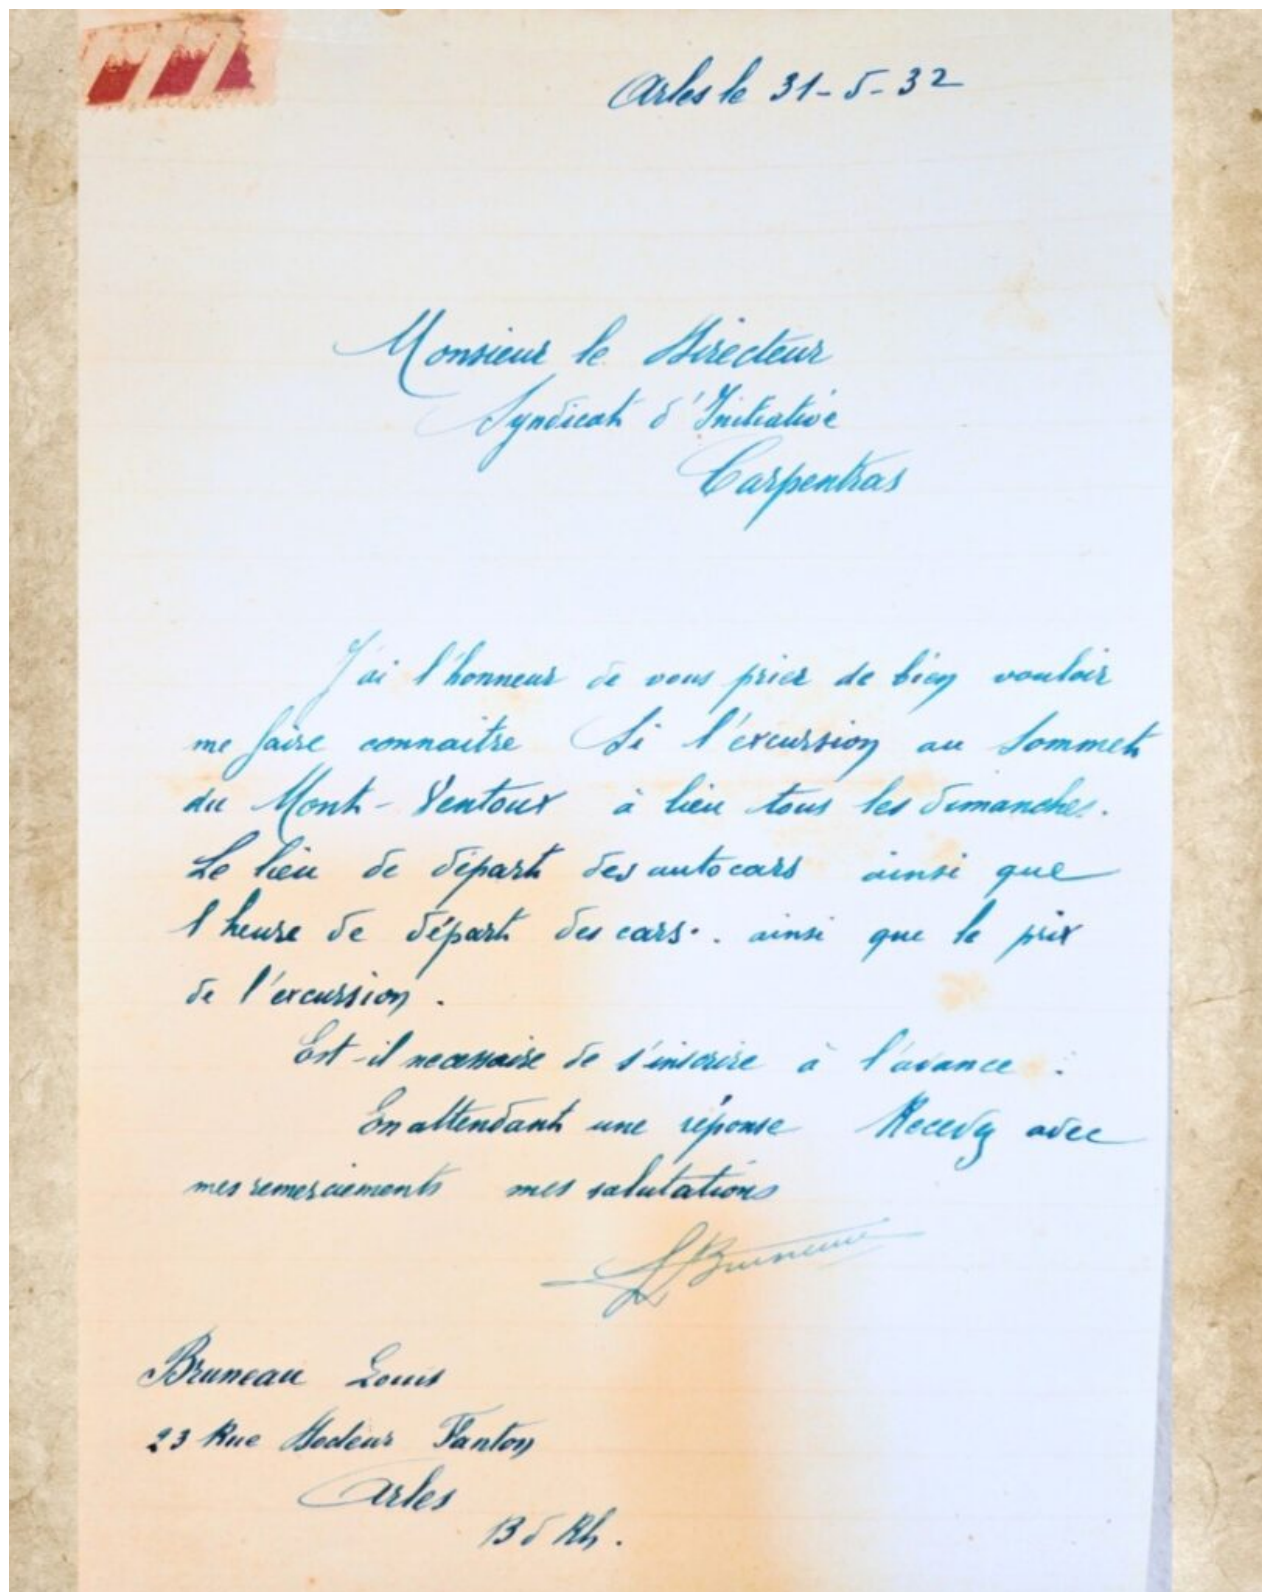 Arles le 31-5-32
Monsieur le Directeur
Syndicat d'Initiative
Carpentras
J'ai l'honneur de vous prier de bien vouloir
me faire connaitre Si l'excursion au Sommet
du Mont-Ventoux à lieu tous les dimanches.
Le lieu de départ des autocars ainsi que
l'heure de départ des cars. ainsi que le prix
de l'excursion.
Est-il necessaire de s'inscrire à l'avance.
En attendant une réponse Recevez avec
mes remerciements mes salutations
LBruneau
Bruneau Louis
23 Rue Docteur Fanton
Arles
B d Rh.